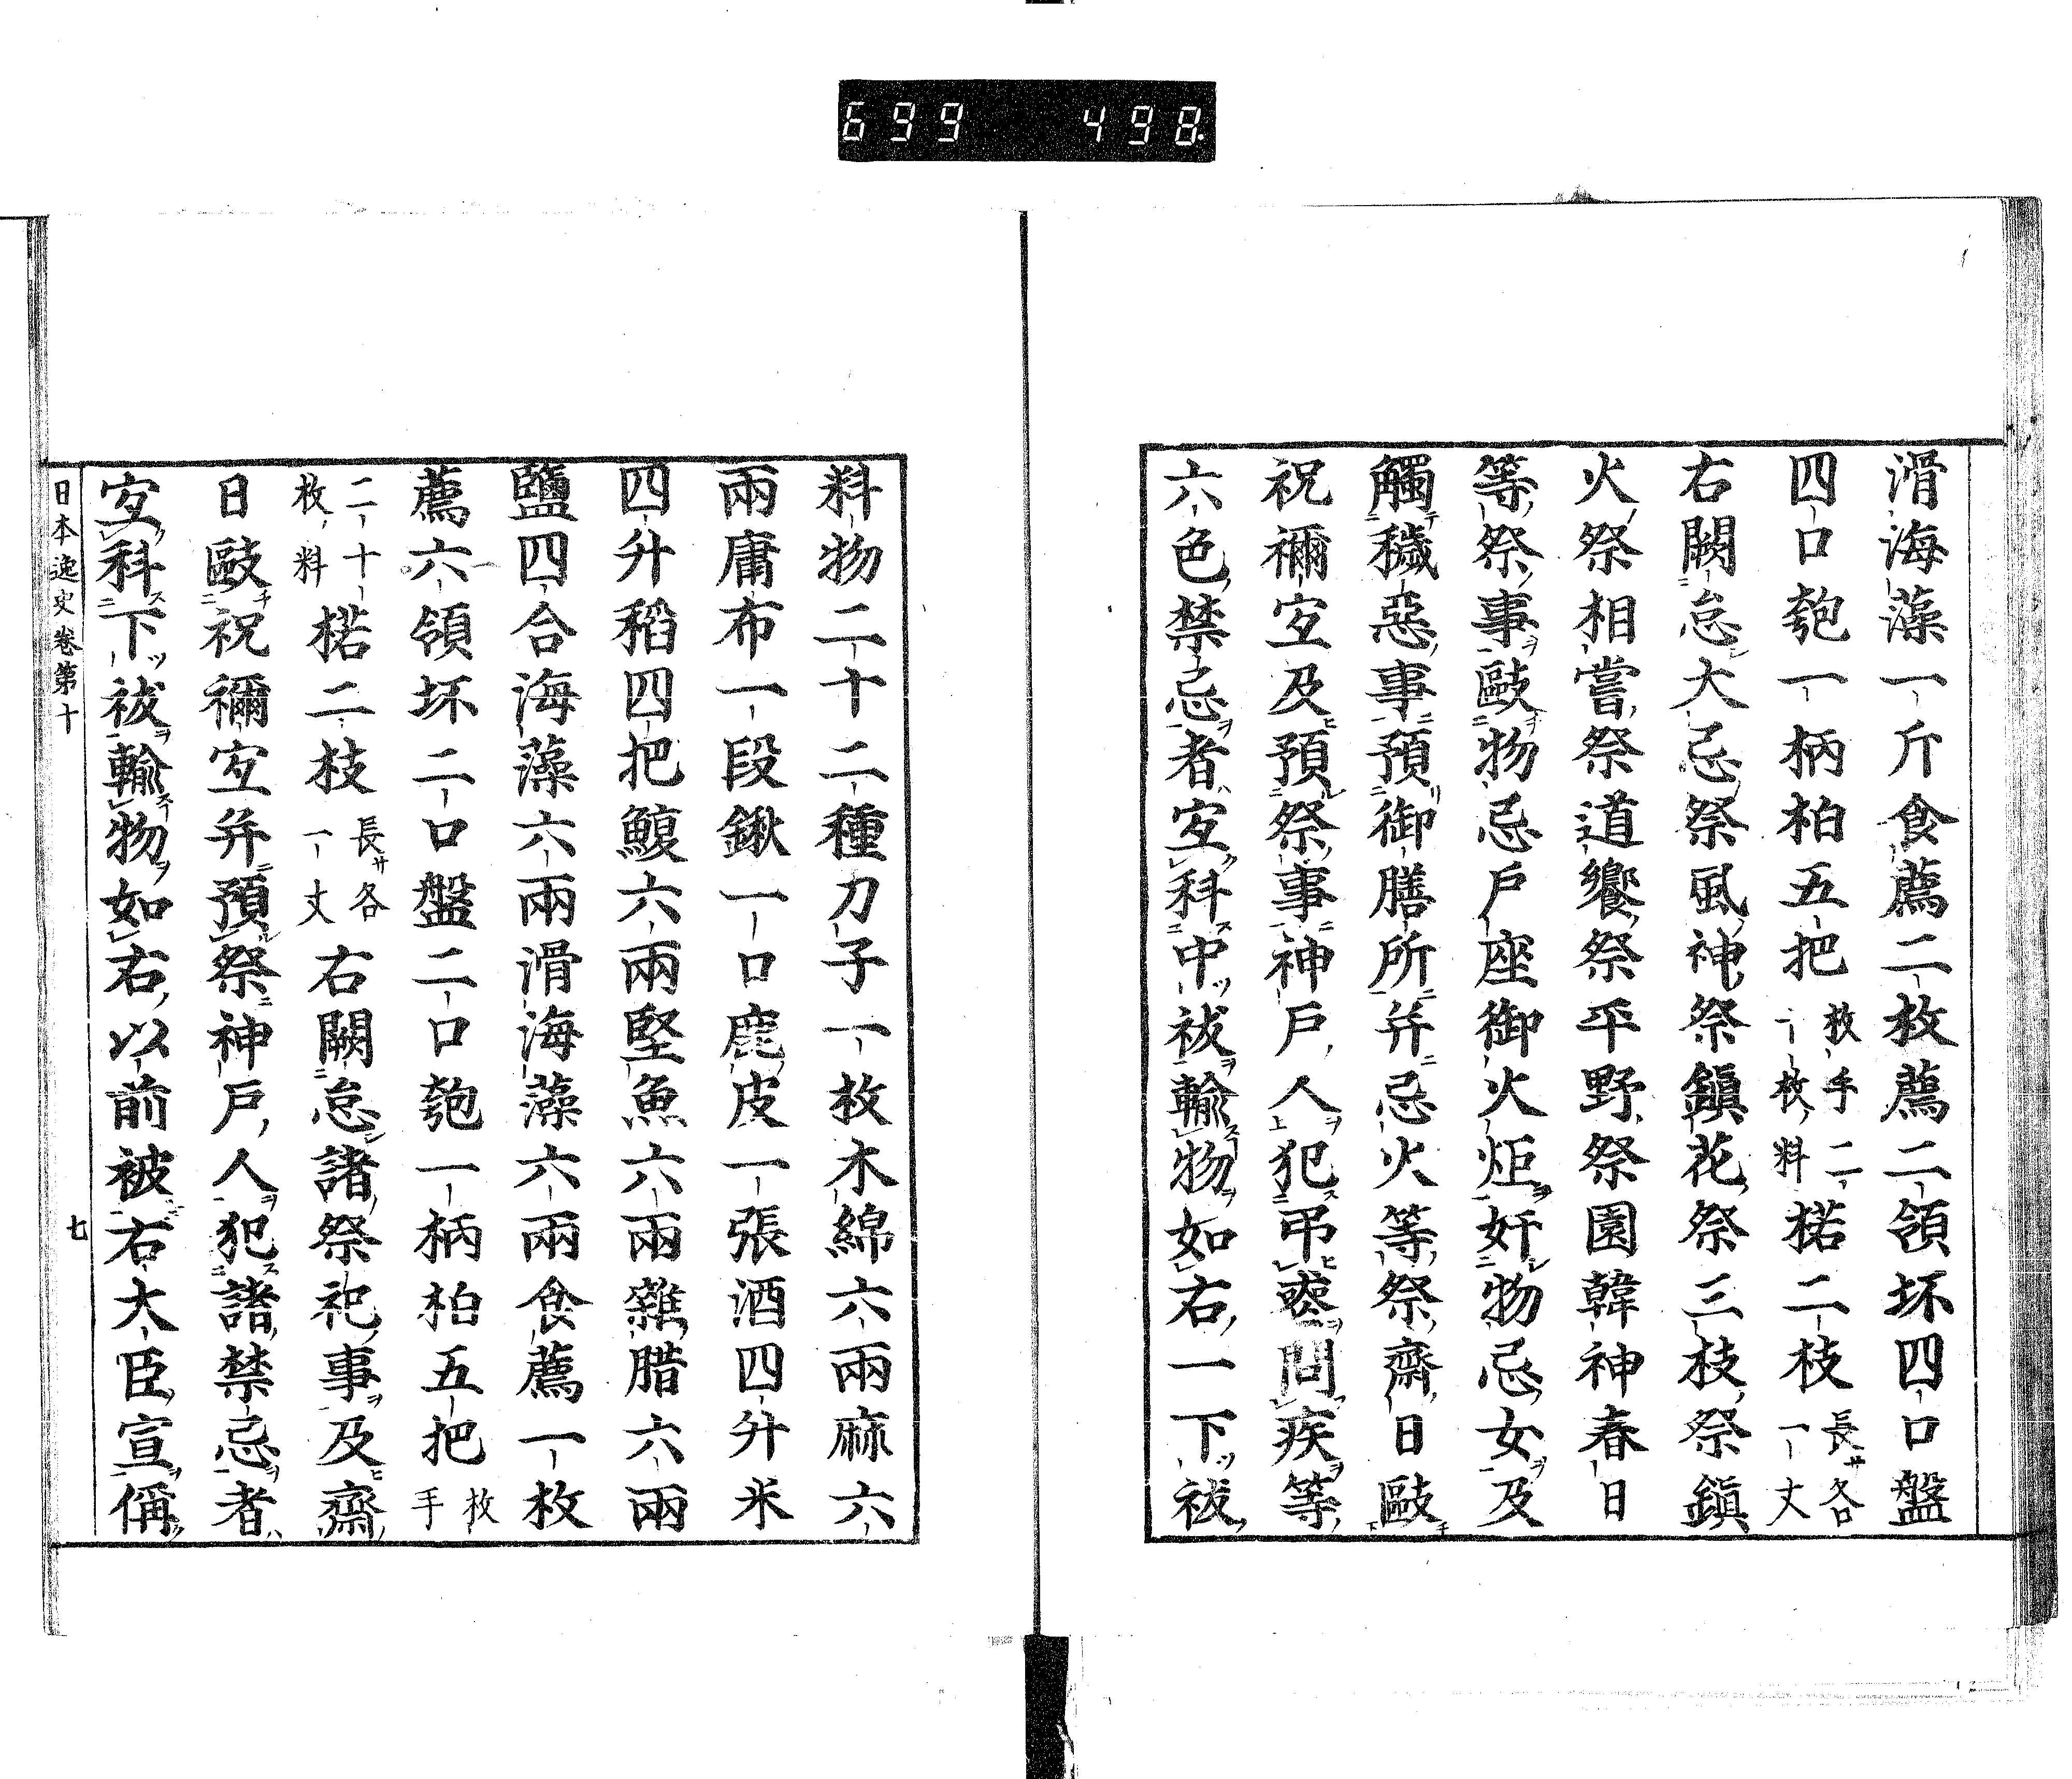 699 498.
滑海藻一斤食薦二枚薦二領坏四口盤
四口匏一柄柏五把枚手二十枚料楉二枝長サ各一丈
右闕怠大忌祭風神祭鎮花祭三枝祭鎮
火祭相嘗祭道饗祭平野祭園韓神春日
等祭事毆物忌戸座御火炬奸物忌女及
觸穢惡事預御膳所并忌火等祭齋日毆
祝禰宜及預祭事神戸人犯弔喪問疾等
六色禁忌者宜科中祓輸物如右一下祓
料物二十二種刀子一枚木綿六兩麻六
兩庸布一段鍬一口鹿皮一張酒四升米
四升稻四把鰒六兩堅魚六兩雜腊六兩
鹽四合海藻六兩滑海藻六兩食薦一枚
薦六領坏二口盤二口匏一柄柏五把枚手
二十枚料楉二枝長サ各一丈右闕怠諸祭祀事及齋
日毆祝禰宜并預祭神戸人犯諸禁忌者
宜科下祓輸物如右以前被右大臣宣偁
日本逸史卷第十 七